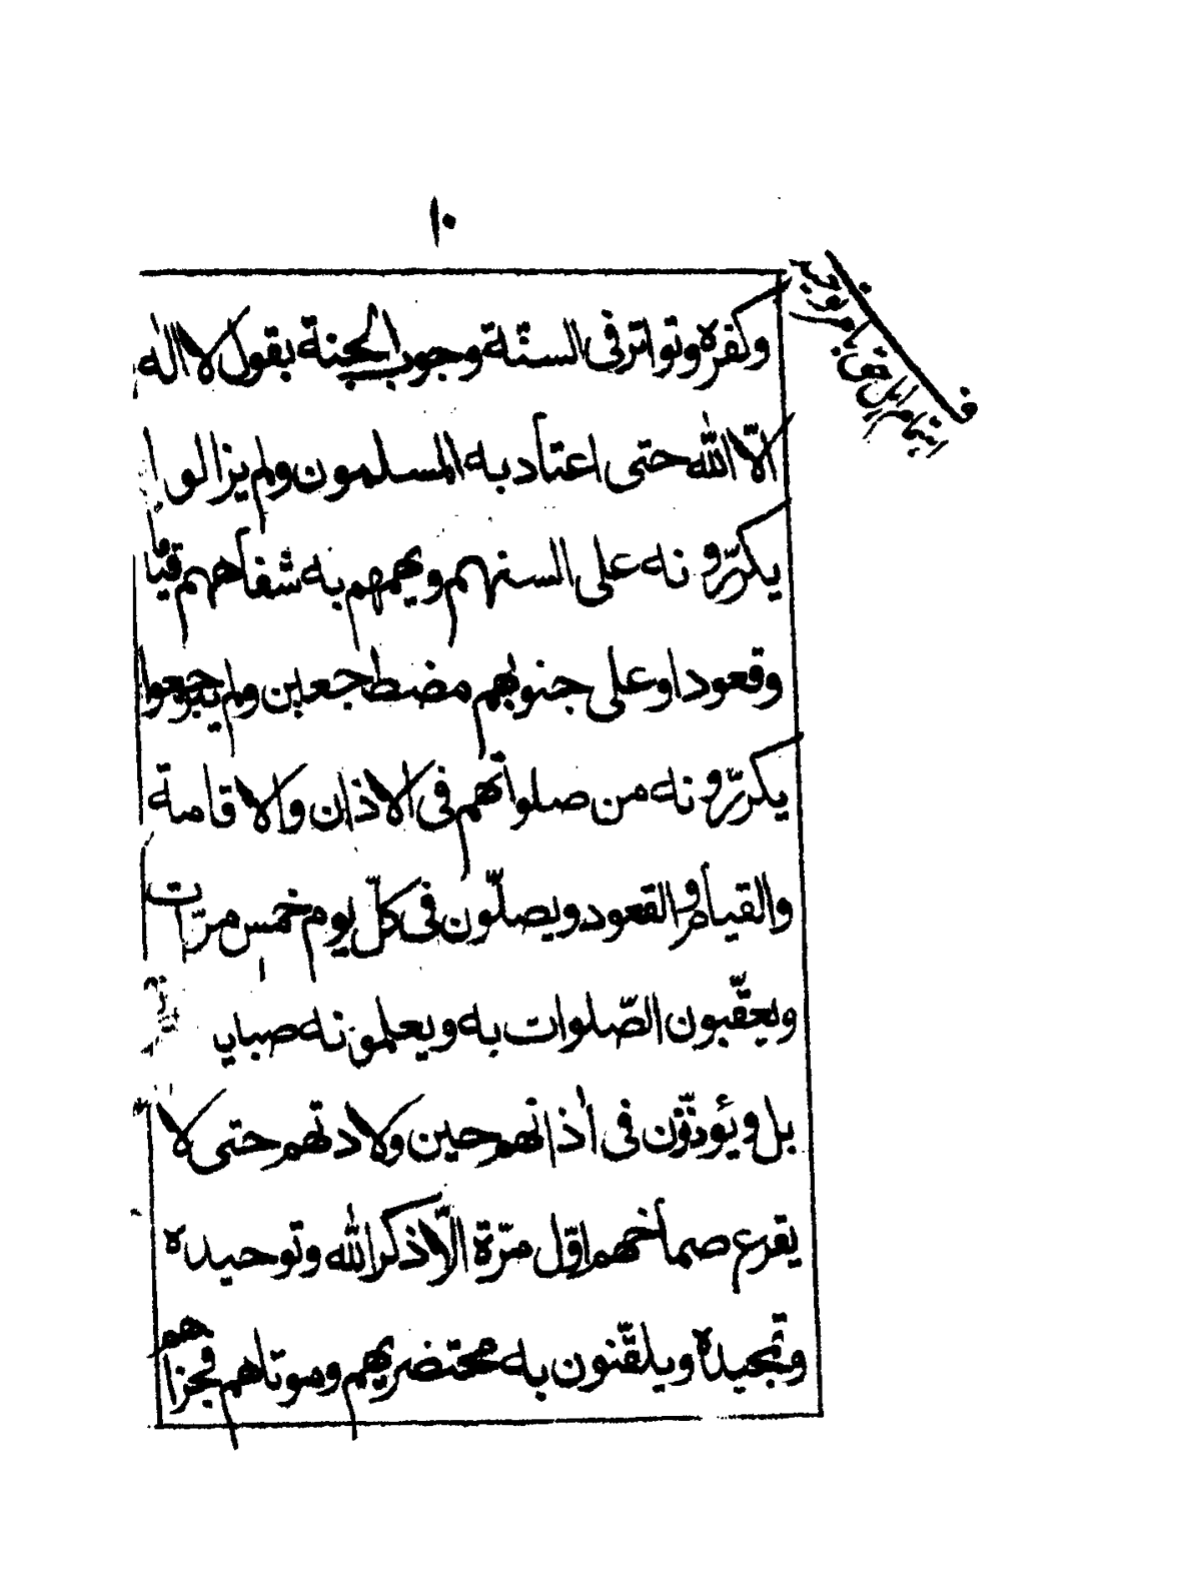 ١٠
وكفره وتواتر فى السنّة وجوب الجنة بقول لا اله
الّا الله حتى اعتاد به المسلمون ولم يزالوا
يكرّرونه على السنهم ويهمهم به شفاههم قيا
وقعودا وعلى جنوبهم مضطجعين ولم يبرجعوا
يكرّرونه من صلواتهم فى الاذان والاقامة
والقيام والقعود ويصلّون فى كلّ يوم خمس مرّات
ويعقّبون الصّلوات به ويعلمونه صبا
بل ويؤذّون فى اذانهم حين ولادتهم حتى لا
يقرع صماخهم اوّل مرّة الّا ذكر الله وتوحيده
وتمجيده ويلقّنون به محتضريهم وموتاهم فجزاهم
ف
اهتمام اهل حق